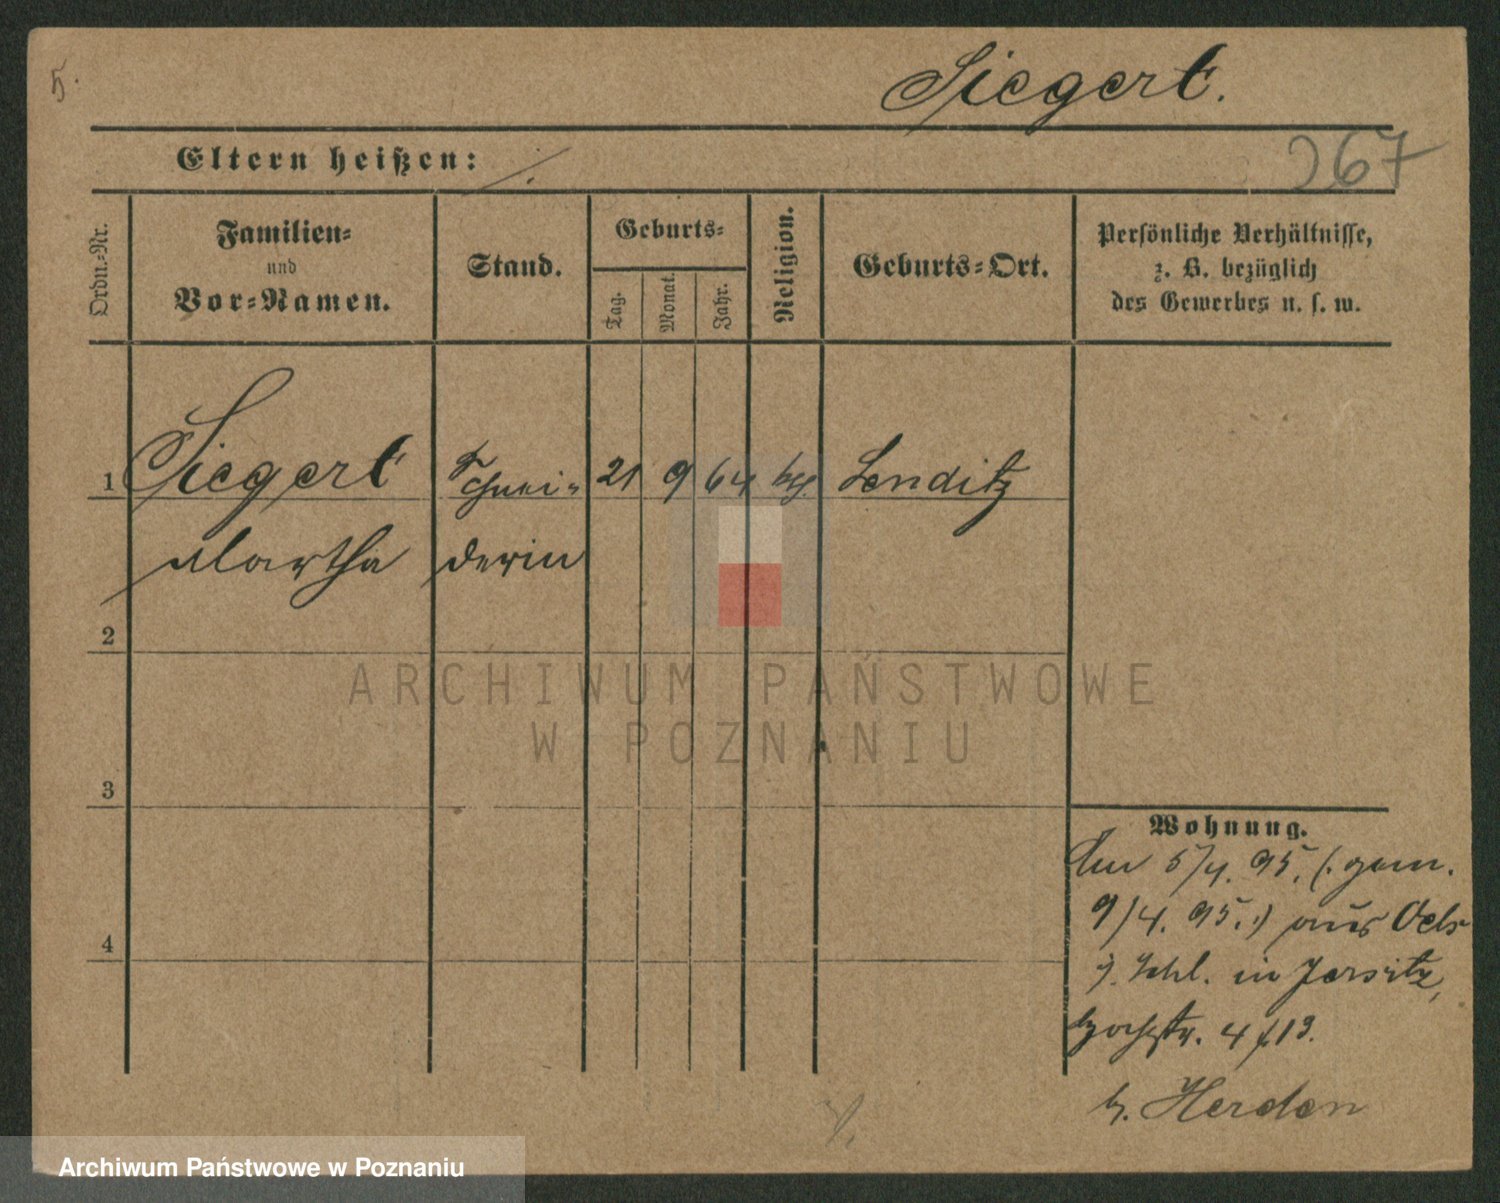 5.
Siegert.
Eltern heißen: ./.
267
Ordn.-Nr.
Familien-
und
Vor-Namen.
Stand.
Geburts-
Tag.
Monat.
Jahr.
Religion.
Geburts-Ort.
Persönliche Verhältnisse,
z. B. bezüglich
des Gewerbes u. s. w.
1 Siegert Schnei- 21 9 64 Lenditz
Martha derin
2
3
4
Wohnung.
Am 5/4. 95. (: gem.
9/4. 95. :) aus Oels
i. Schl. in Jersitz,
4 f 13.
b. Herden
ARCHIWUM PAŃSTWOWE
W POZNANIU
Archiwum Państwowe w Poznaniu